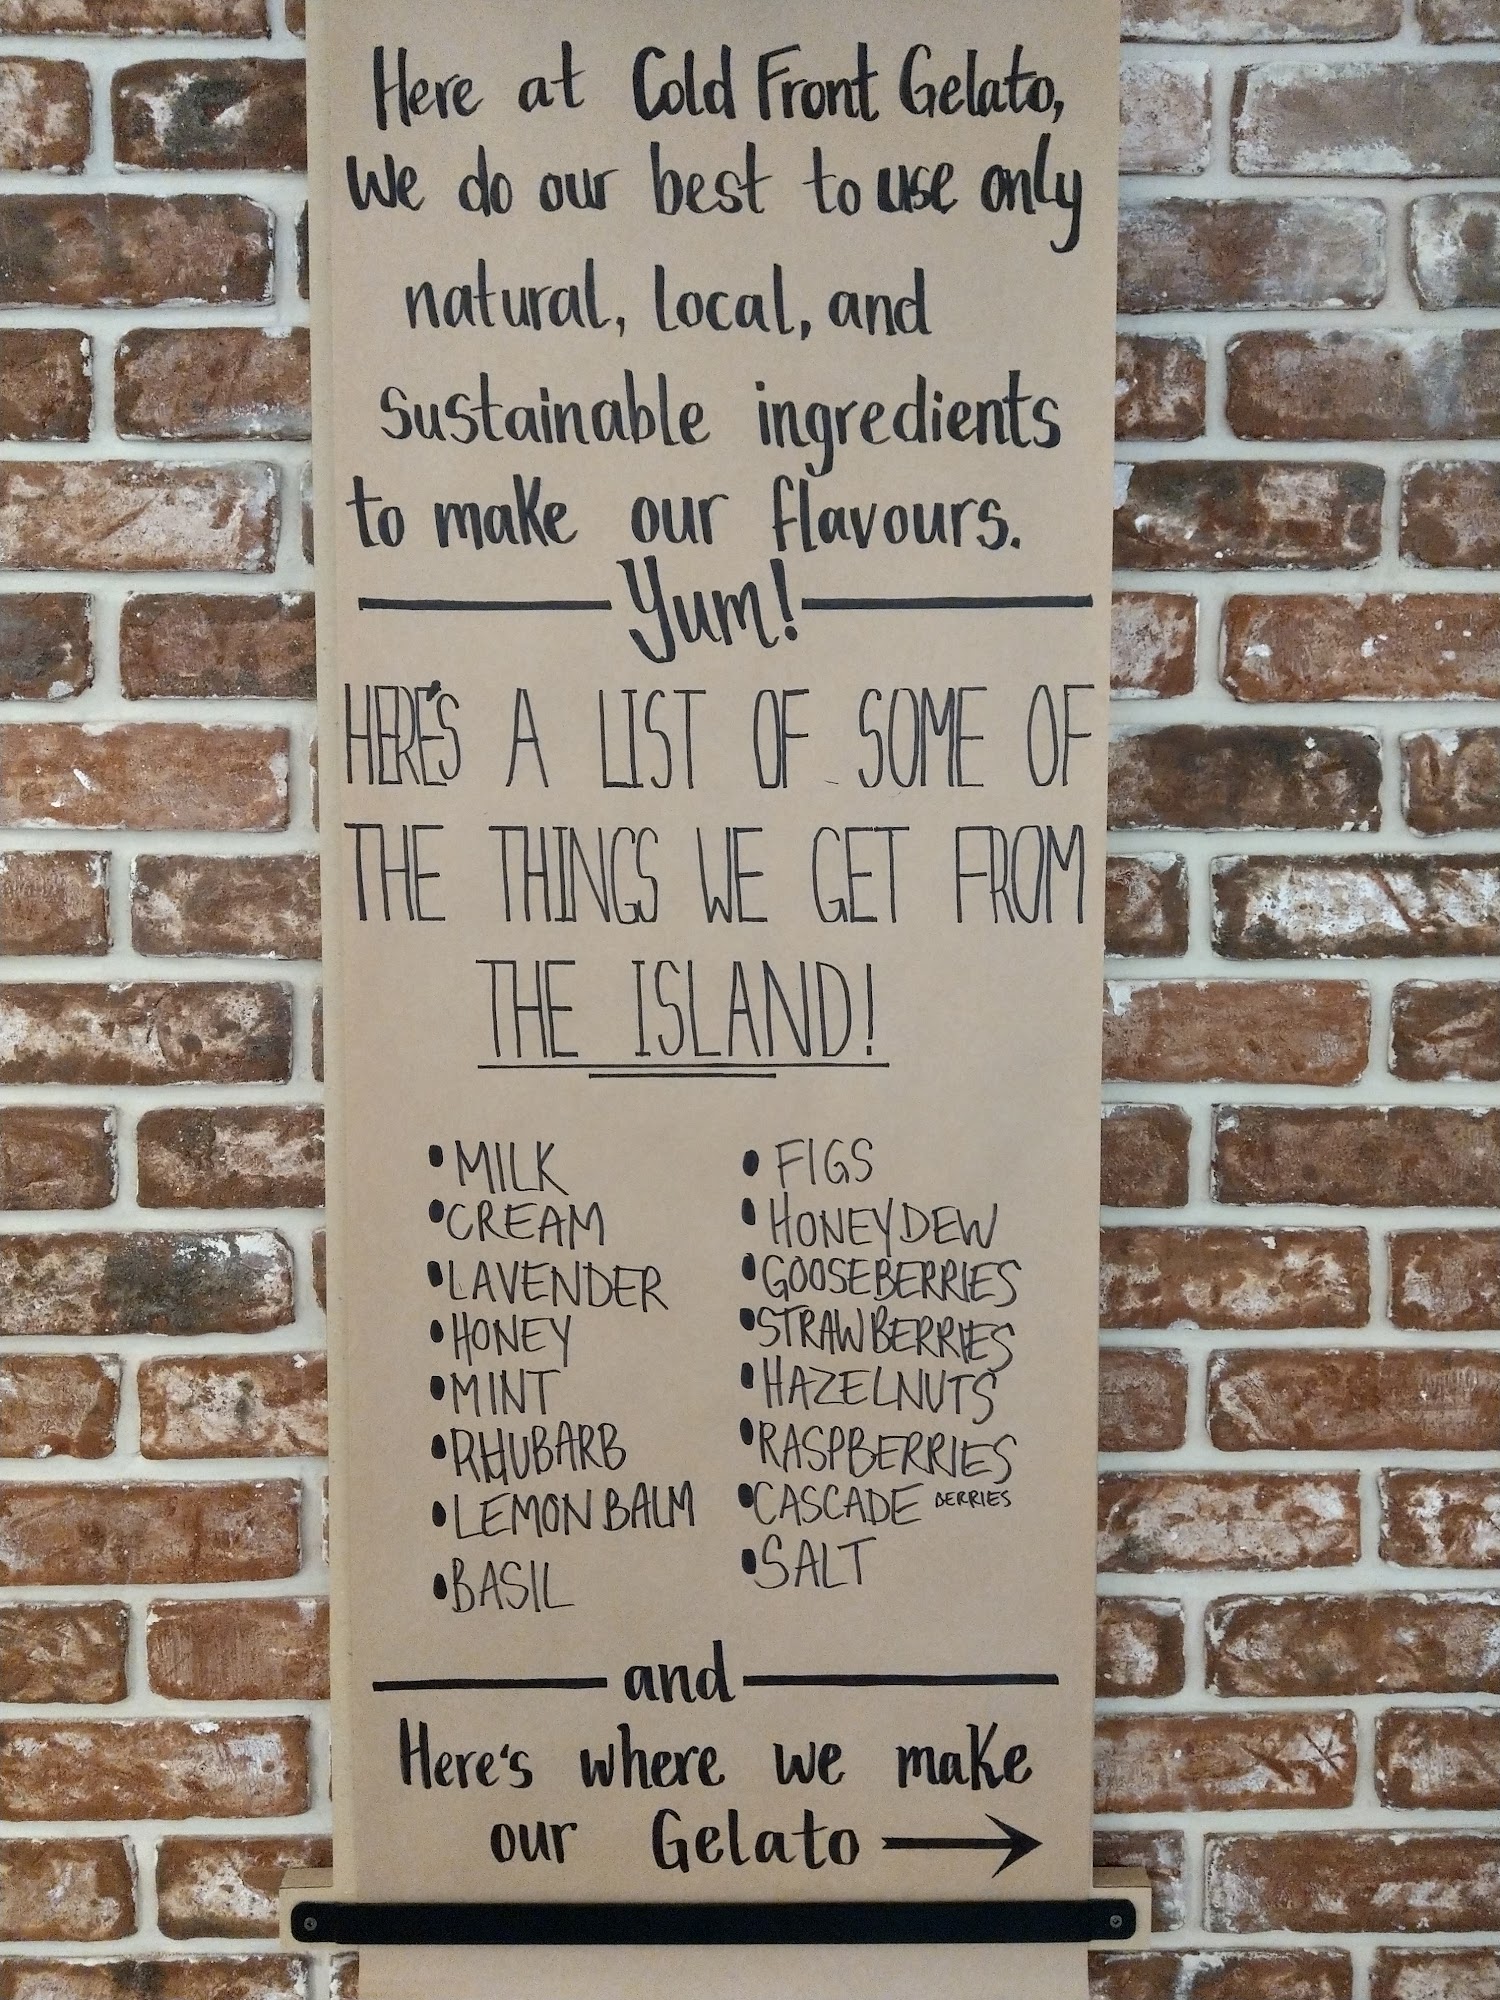 Here at Cold Front Gelato,
We do our best to use only
natural, local, and
sustainable ingredients
to make our flavours.
Yum!
HERE'S A LIST OF SOME OF
THE THINGS WE GET FROM
THE ISLAND!
• MILK
• CREAM
• LAVENDER
• HONEY
• MINT
• RHUBARB
• LEMON BALM
• BASIL
• FIGS
• HONEYDEW
• GOOSEBERRIES
• STRAWBERRIES
• HAZELNUTS
• RASPBERRIES
• CASCADE BERRIES
• SALT
and
Here's where we make
our Gelato →